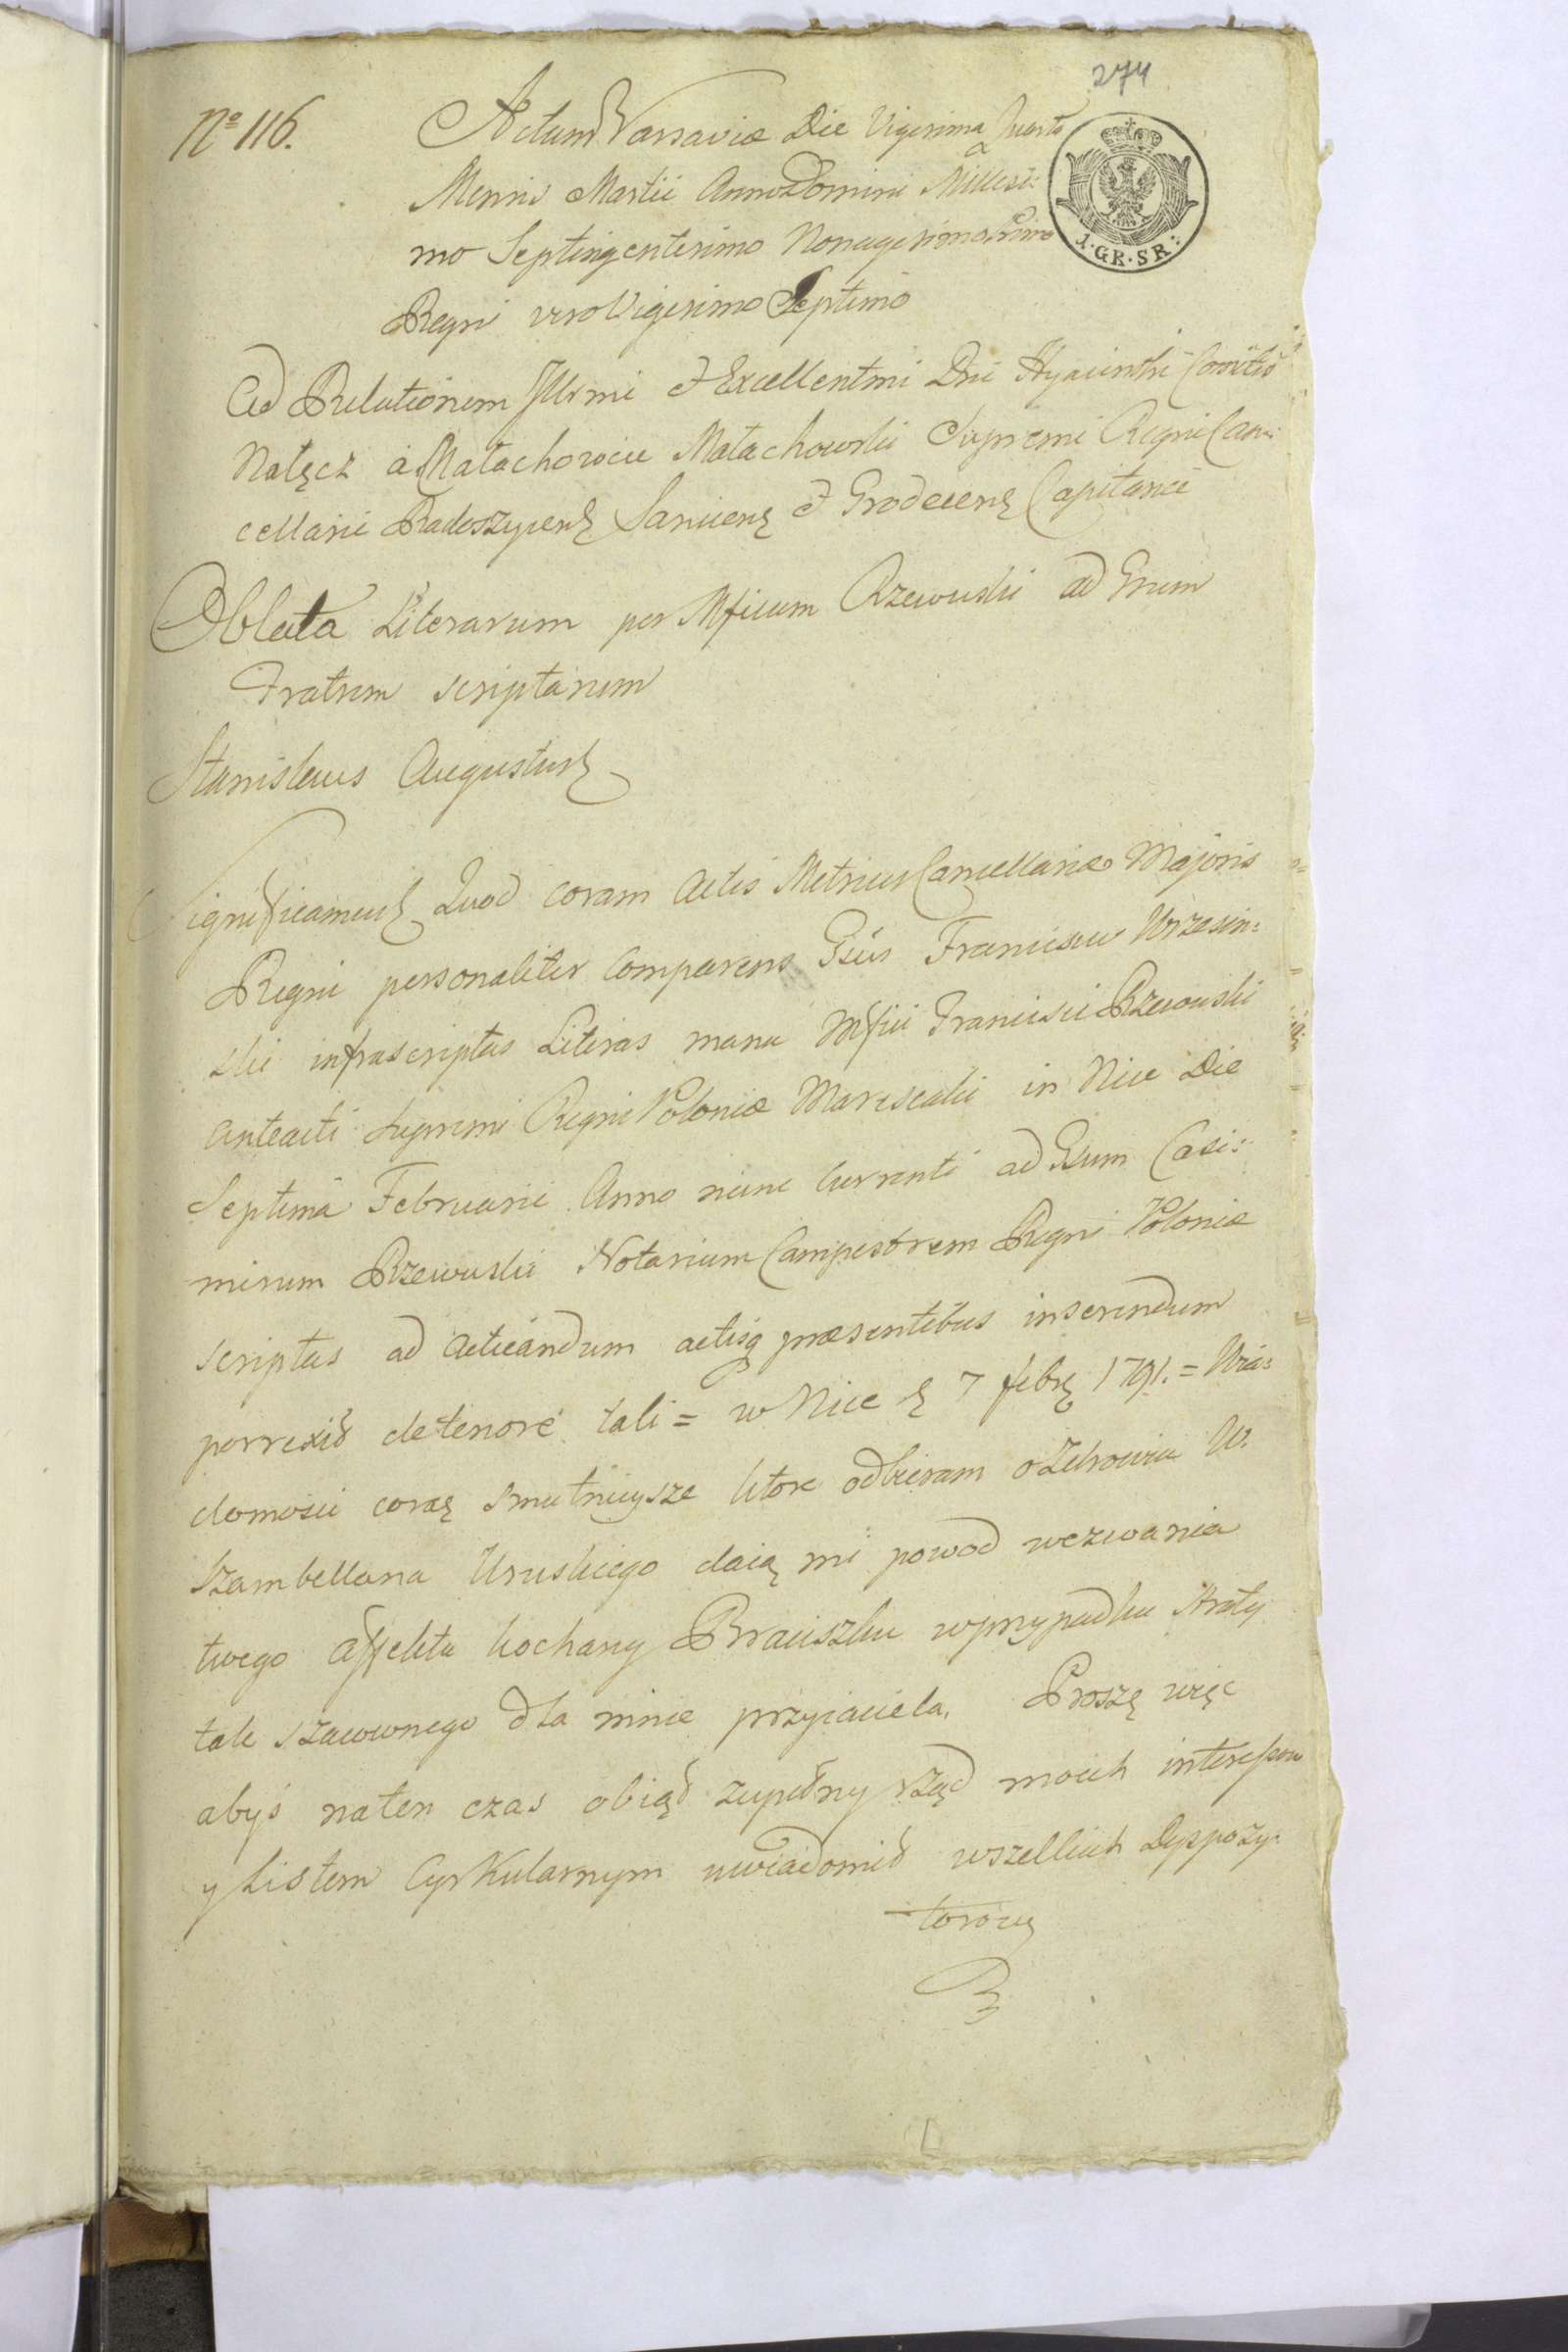 274
Nº 116.
Actum Varsaviæ Die Vigesima Quarta
Mensis Martii Anno Domini Millesi:
mo Septingentesimo Nonagesimo Primo
Regni vero Vigesimo Septimo
1.GR.SR.
Ad Relationem Illrmi et Excellentmi Dni Hyacinthi Comitis
Nałęcz à Małachowice Małachowski Supremi Regni Can:
cellarii Radoszycens Saniiens et Grodecens Capitanei
Oblata Literarum per Mficum Rzewuski ad Gsum
Fratrem scriptarum
Stanislaus Augustus
Significamus Quod coram Actis Metrices Cancellariæ Majoris
Regni personaliter Comparens Gsus Franciscus Wrzesin:
ski infrascriptas Literas manu Mfici Francisci Rzewuski
anteacti Supremi Regni Poloniæ Marescalci in Nice Die
Septima Februarii Anno nunc Currenti ad Gsum Casi:
mirum Rzewuski Notarium Campestrem Regni Poloniæ
scriptas ad acticandum actisq præsentibus inserendum
porrexit de tenore tali = w Nice d 7 febr 1791. = Wia:
domosci coraz smutnieysze ktore odbieram o Zdrowiu W.
Szambellana Uruskiego daią mi powod wezwania
twego affektu kochany Braciszku w przypadku straty
tak szacownego dla mnie przyiaciela. Proszę więc
abyś naten czas obiął zupełny rząd moich interessow
y Listem Cyrkularnym uwiadomił wszelkich Dyspozy:
torow